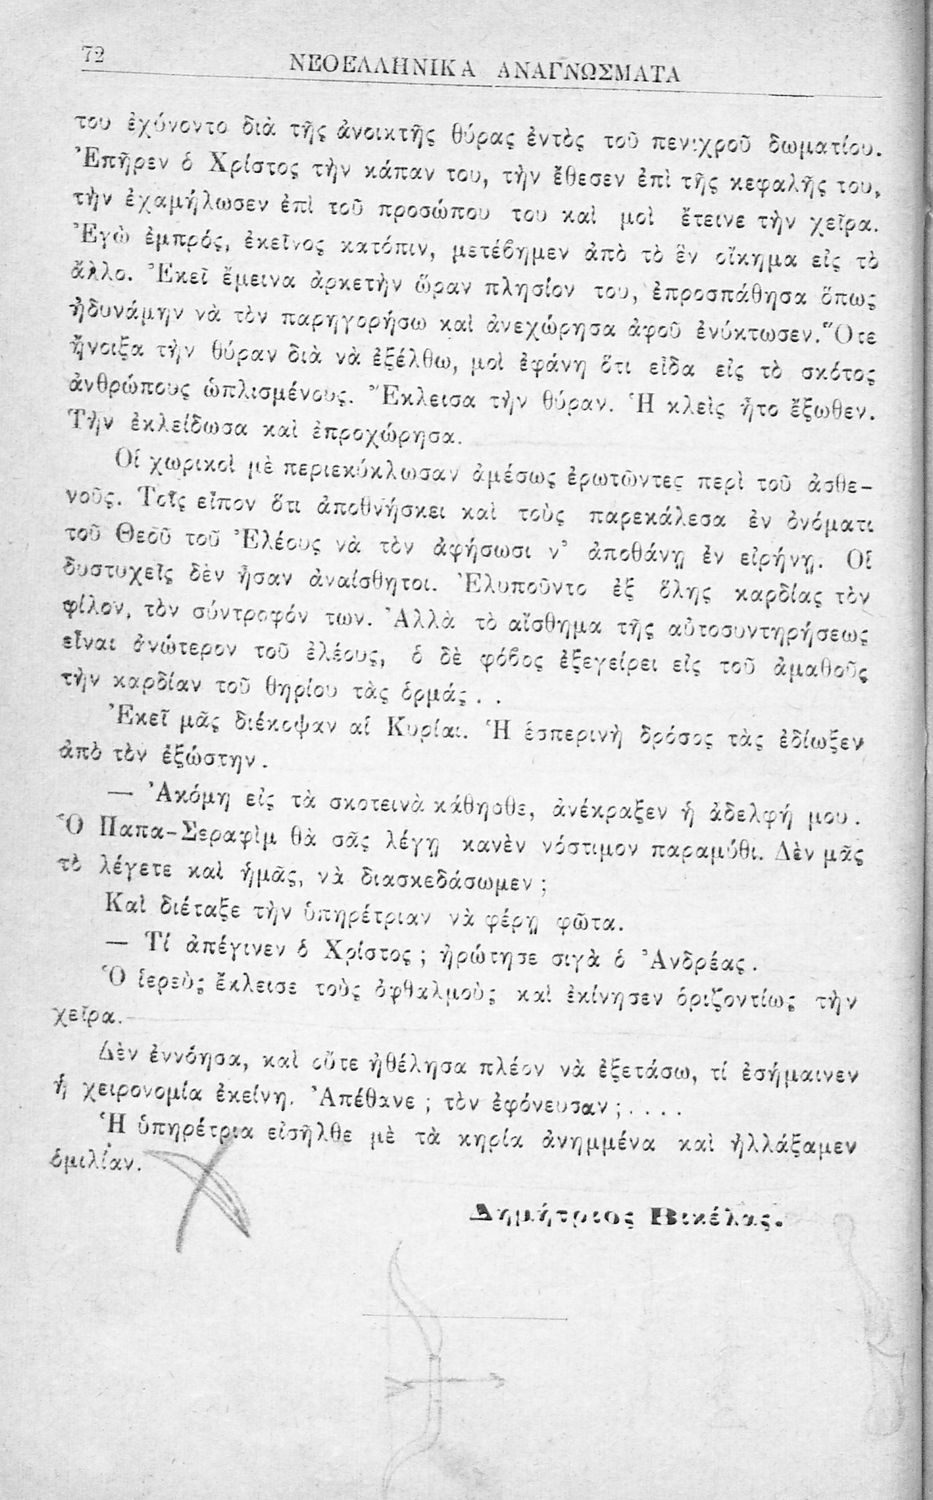 72
ΝΕΟΕΛΛΗΝΙΚΑ ΑΝΑΓΝΩΣΜΑΤΑ
του ἐχύνοντο διὰ τῆς ἀνοικτῆς θύρας ἐντὸς τοῦ πενιχροῦ δωματίου.
Ἐπῆρεν ὁ Χρίστος τὴν κάπαν του, τὴν ἔθεσεν ἐπὶ τῆς κεφαλῆς του,
τὴν ἐχαμήλωσεν ἐπὶ τοῦ προσώπου του καὶ μοὶ ἔτεινε τὴν χεῖρα.
Ἐγὼ ἐμπρός, ἐκεῖνος κατόπιν, μετέβημεν ἀπὸ τὸ ἓν οἴκημα εἰς τὸ
ἄλλο. Ἐκεῖ ἔμεινα ἀρκετὴν ὥραν πλησίον του, ἐπροσπάθησα ὅπως
ἠδυνάμην νὰ τὸν παρηγορήσω καὶ ἀνεχώρησα ἀφοῦ ἐνύκτωσεν. Ὅτε
ἤνοιξα τὴν θύραν διὰ νὰ ἐξέλθω, μοὶ ἐφάνη ὅτι εἶδα εἰς τὸ σκότος
ἀνθρώπους ὡπλισμένους. Ἔκλεισα τὴν θύραν. Ἡ κλεὶς ἦτο ἔξωθεν.
Τὴν ἐκλείδωσα καὶ ἐπροχώρησα.
Οἱ χωρικοὶ μὲ περιεκύκλωσαν ἀμέσως ἐρωτῶντες περὶ τοῦ ἀσθε-
νοῦς. Τοῖς εἶπον ὅτι ἀποθνήσκει καὶ τοὺς παρεκάλεσα ἐν ὀνόματι
τοῦ Θεοῦ τοῦ Ἐλέους νὰ τὸν ἀφήσωσι ν' ἀποθάνῃ ἐν εἰρήνῃ. Οἱ
δυστυχεῖς δὲν ἦσαν ἀναίσθητοι. Ἐλυποῦντο ἐξ ὅλης καρδίας τὸν
φίλον, τὸν σύντροφόν των. Ἀλλὰ τὸ αἴσθημα τῆς αὐτοσυντηρήσεως
εἶναι ἀνώτερον τοῦ ἐλέους, ὁ δὲ φόβος ἐξεγείρει εἰς τοῦ ἀμαθοῦς
τὴν καρδίαν τοῦ θηρίου τὰς ὁρμάς. .
Ἐκεῖ μᾶς διέκοψαν αἱ Κυρίαι. Ἡ ἑσπερινὴ δρόσος τὰς ἐδίωξεν
ἀπὸ τὸν ἐξώστην.
— Ἀκόμη εἰς τὰ σκοτεινὰ κάθησθε, ἀνέκραξεν ἡ ἀδελφή μου.
Ὁ Παπα-Σεραφὶμ θὰ σᾶς λέγῃ κανὲν νόστιμον παραμύθι. Δὲν μᾶς
τὸ λέγετε καὶ ἡμᾶς, νὰ διασκεδάσωμεν ;
Καὶ διέταξε τὴν ὑπηρέτριαν νὰ φέρῃ φῶτα.
— Τί ἀπέγινεν ὁ Χρίστος ; ἠρώτησε σιγὰ ὁ Ἀνδρέας.
Ὁ ἱερεὺς ἔκλεισε τοὺς ὀφθαλμοὺς καὶ ἐκίνησεν ὁριζοντίως τὴν
χεῖρα.
Δὲν ἐννόησα, καὶ οὔτε ἠθέλησα πλέον νὰ ἐξετάσω, τί ἐσήμαινεν
ἡ χειρονομία ἐκείνη. Ἀπέθανε ; τὸν ἐφόνευσαν ; . . . .
Ἡ ὑπηρέτρια εἰσῆλθε μὲ τὰ κηρία ἀνημμένα καὶ ἠλλάξαμεν
ὁμιλίαν.
Δημήτριος Βικέλας.